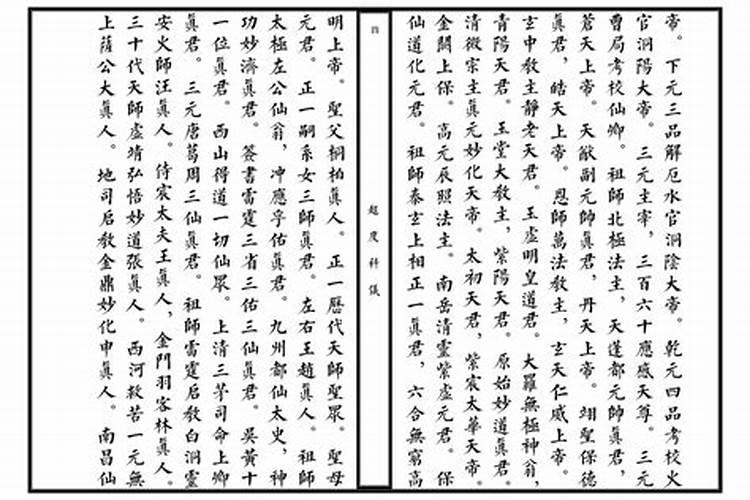 帝。下元三品解厄水官洞陰大帝。乾元四品考校火
官洞陽大帝。三元主宰,三百六十應感天尊。三元
曹局考校仙卿。祖師北極法主,天蓬都元帥真君,
蒼天上帝。天猷副元帥真君,丹天上帝。翊聖保德
真君,皓天上帝。恩師萬法教主,玄天仁威上帝。
玄中教主靜老天君。玉虛明皇道君。大羅無極神翁,
青陽天君。玉堂大教主,紫陽天君。原始妙道真君。
清微宗主真元妙化天帝。太初天君,紫宸太華天帝。
金闕上保。高元辰照法主。南岳清靈紫虛元君。保
仙道化元君。祖師泰玄上相正一真君,六合無窮高
四
超度科儀
明上帝。聖父桐柏真人。正一歷代天師聖眾。聖母
元君。正一嗣系女三師真君。左右王趙真人。祖師
太極左公仙翁,冲應孚佑真君。九州都仙太史,神
功妙濟真君。簽書雷霆三省三佑三仙真君。吳黃十
一位真君。西山得道一切仙眾。上清三茅司命上卿
真君。三元唐葛周三仙真君。祖師雷霆启教白洞靈
安火師汪真人。侍宸太夫王真人,金門羽客林真人。
三十代天師虛靖弘悟妙道張真人。西河救苦一元無
上薩公大真人。地司启教金鼎妙化申真人。南昌仙